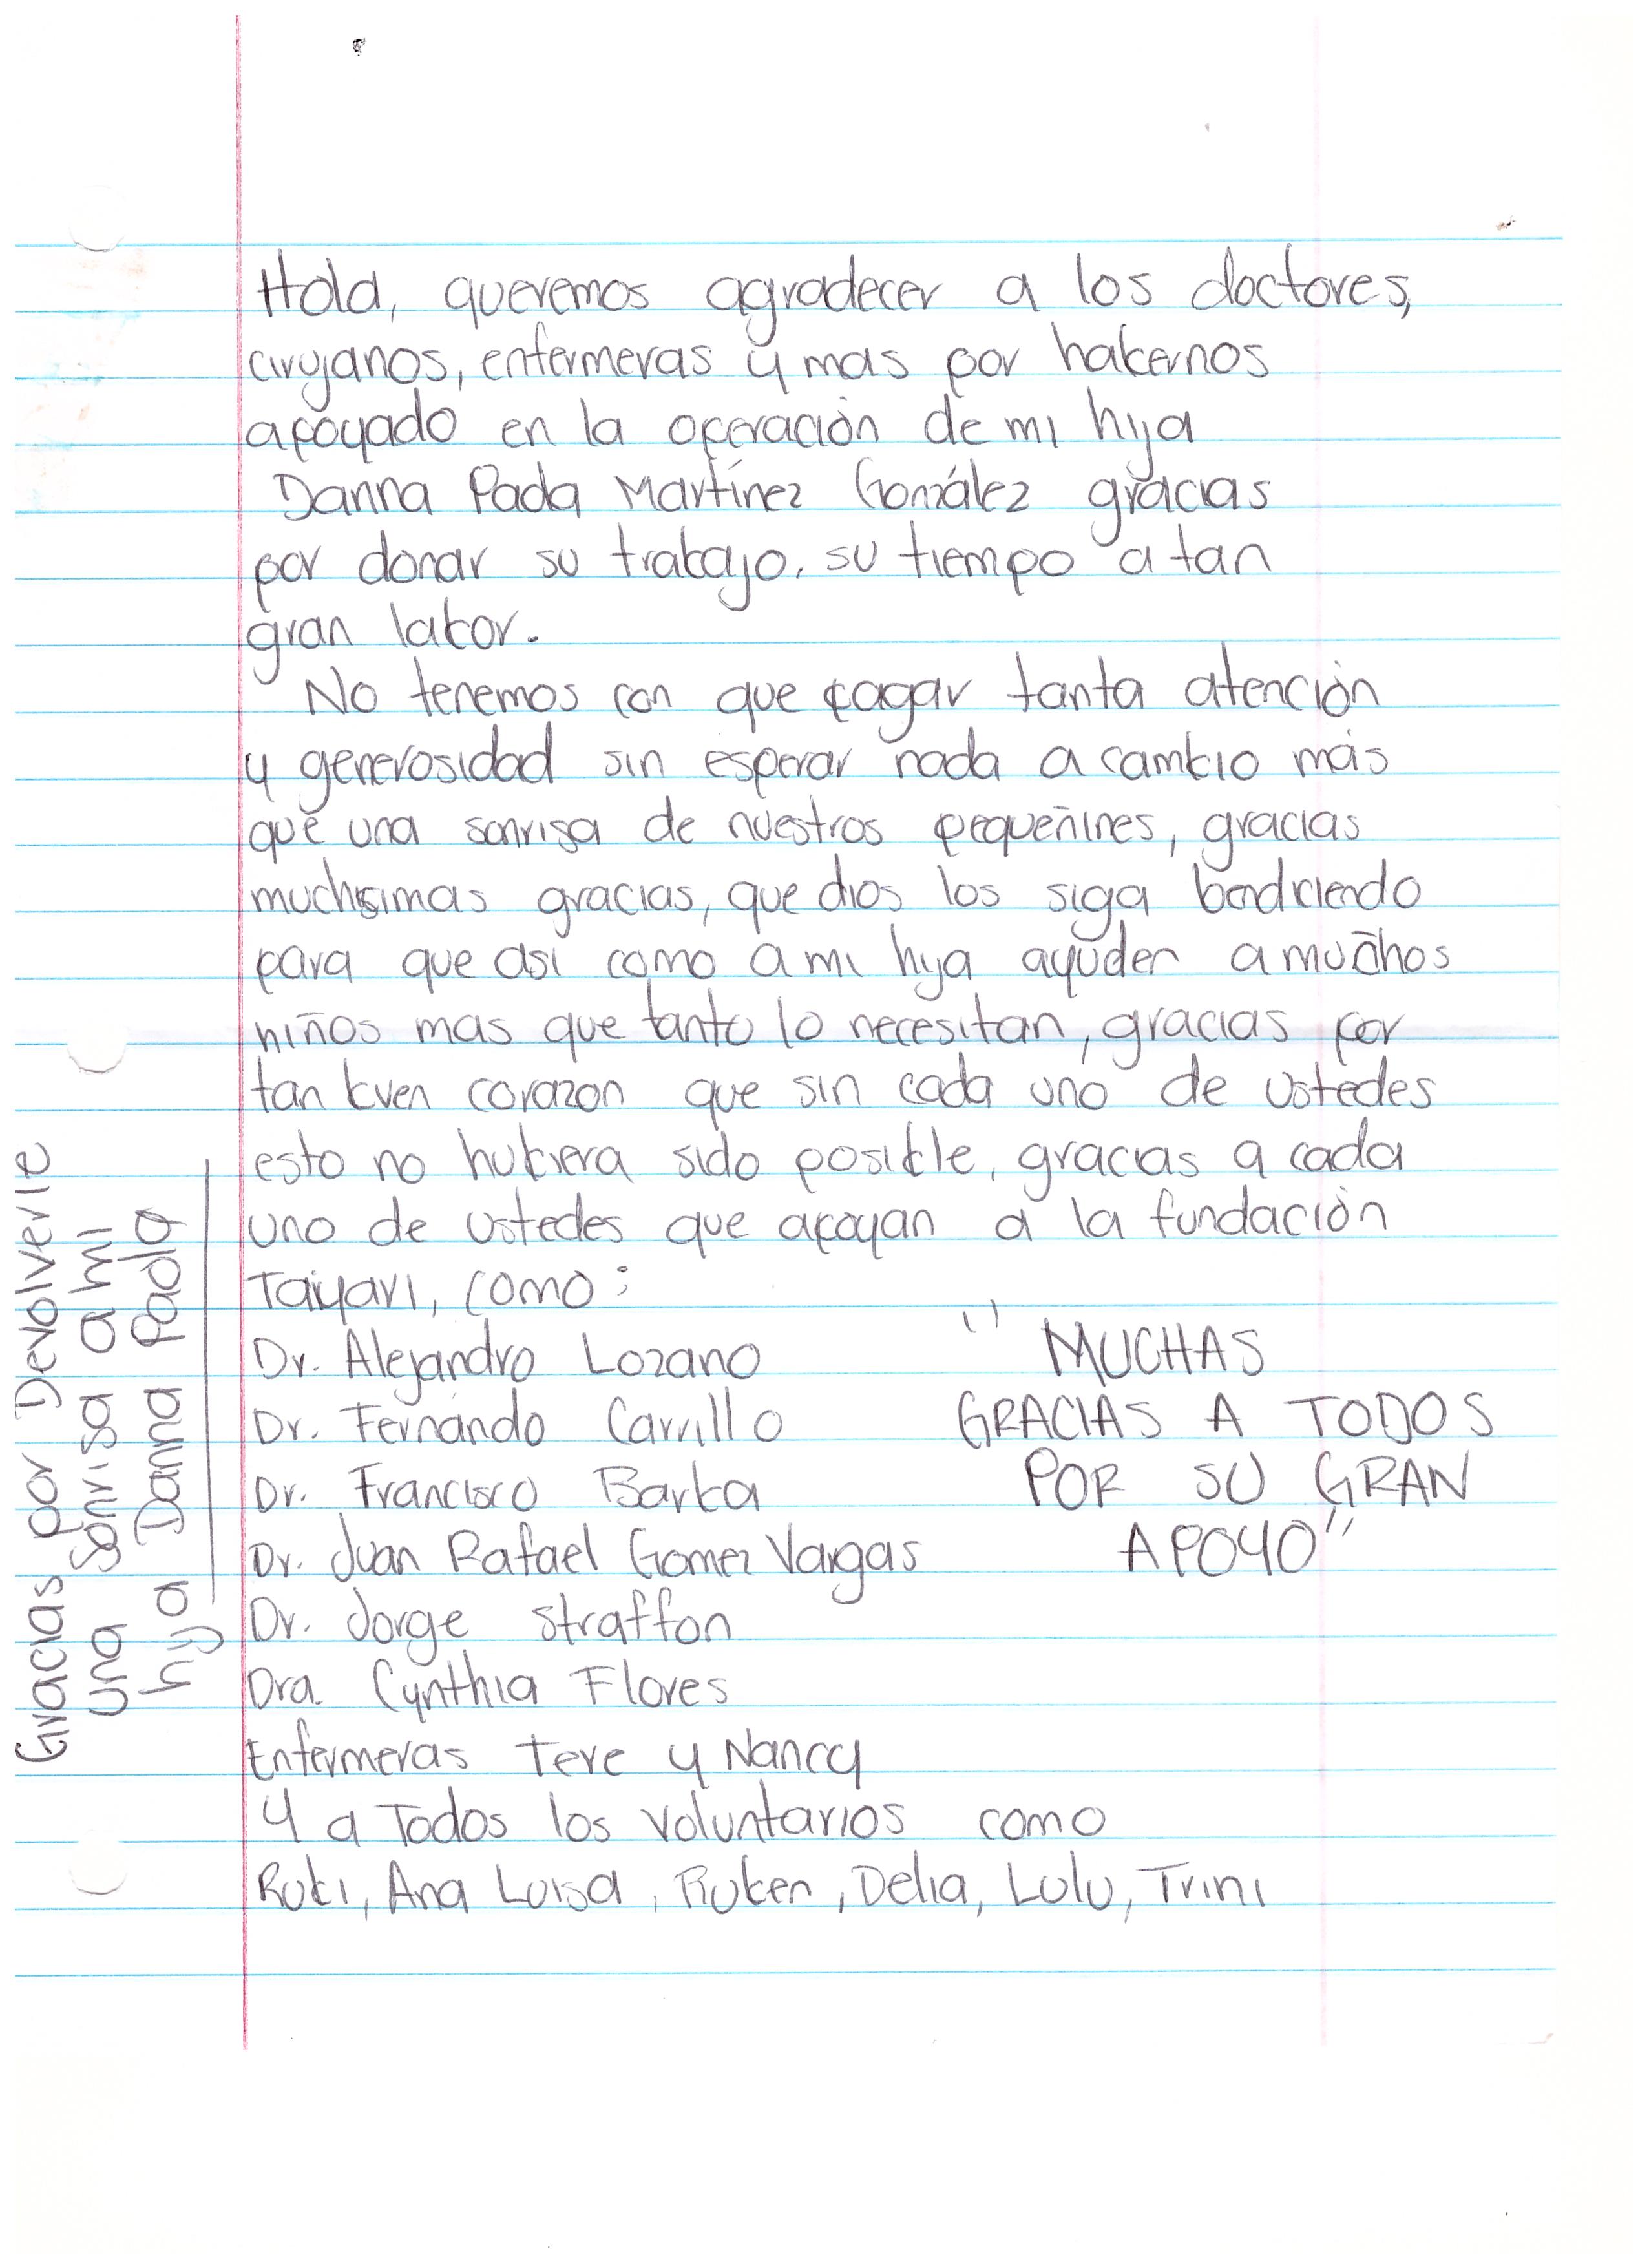 Hola, queremos agradecer a los doctores,
cirujanos, enfermeras y mas por habernos
apoyado en la operación de mi hija
Danna Paola Martínez González gracias
por donar su trabajo, su tiempo a tan
gran labor.
No tenemos con que pagar tanta atención
y generosidad sin esperar nada a cambio más
que una sonrisa de nuestros pequeñines, gracias
muchisimas gracias, que dios los siga bendiciendo
para que asi como a mi hija ayuden a muchos
niños mas que tanto lo necesitan, gracias por
tan buen corazon que sin cada uno de ustedes
esto no hubiera sido posible, gracias a cada
uno de ustedes que apoyan a la fundación
Taiyari, como:
Dr. Alejandro Lozano
Dr. Fernando Carrillo
Dr. Francisco Barba
Dr. Juan Rafael Gomez Vargas
Dr. Jorge Straffon
Dra Cynthia Flores
Enfermeras Tere y Nancy
Y a Todos los voluntarios como
Rubi, Ana Luisa, Ruben, Delia, Lulu, Trini
"MUCHAS
GRACIAS A TODOS
POR SU GRAN
APOYO"
Gracias por Devolverle
una Sonrisa a mi
hija Danna Paola